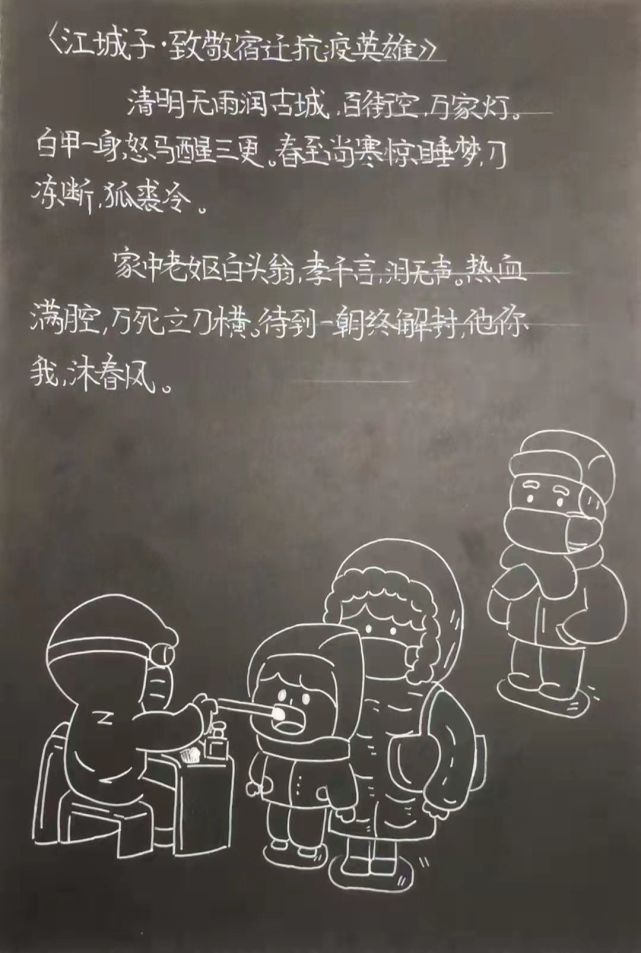 《江城子·致敬宿迁抗疫英雄》
清明无雨润古城,百街空,万家灯。
白甲一身,怒马醒三更。春至尚寒惊睡梦,刀
冻断,狐裘冷。
家中老妪白头翁,孝千言,泪无声。热血
满腔,万死立刀横。待到一朝终解封,他你
我,沐春风。